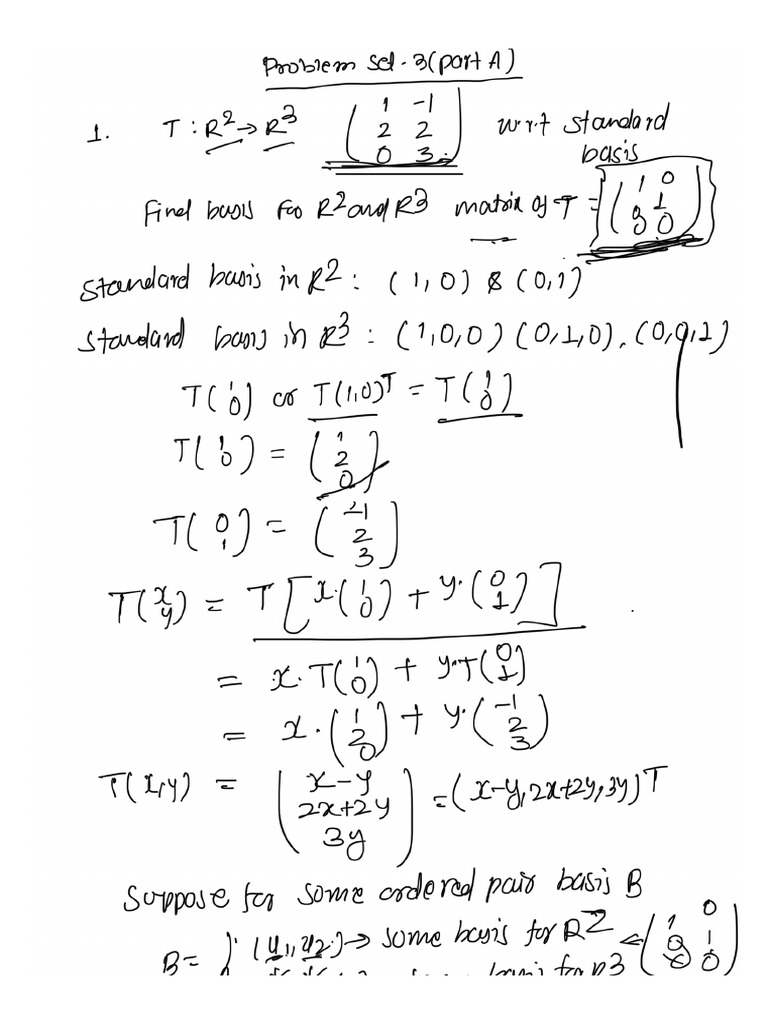 Problem Set-3(part A)
1. T : R² → R³ ( 1 -1 / 2 2 / 0 3 ) w.r.t standard
basis
Find basis for R² and R³ matrix of T = ( 1 0 / 0 1 / 0 0 )
standard basis in R² : (1,0) & (0,1)
standard basis in R³ : (1,0,0) (0,1,0), (0,0,1)
T(1 0) or T(1,0)ᵀ = T(1 0)
T(1 0) = ( 1 2 0 )
T(0 1) = ( -1 2 3 )
T(x y) = T[ x·(1 0) + y·(0 1) ]
= x·T(1 0) + y·T(0 1)
= x·( 1 2 0 ) + y·( -1 2 3 )
T(x,y) = ( x-y / 2x+2y / 3y ) = (x-y, 2x+2y, 3y)ᵀ
Suppose for some ordered pair basis B
B = { (u₁, u₂) → some basis for R² ← ( 1 0 / 0 1 / 0 0 )
some basis for R³